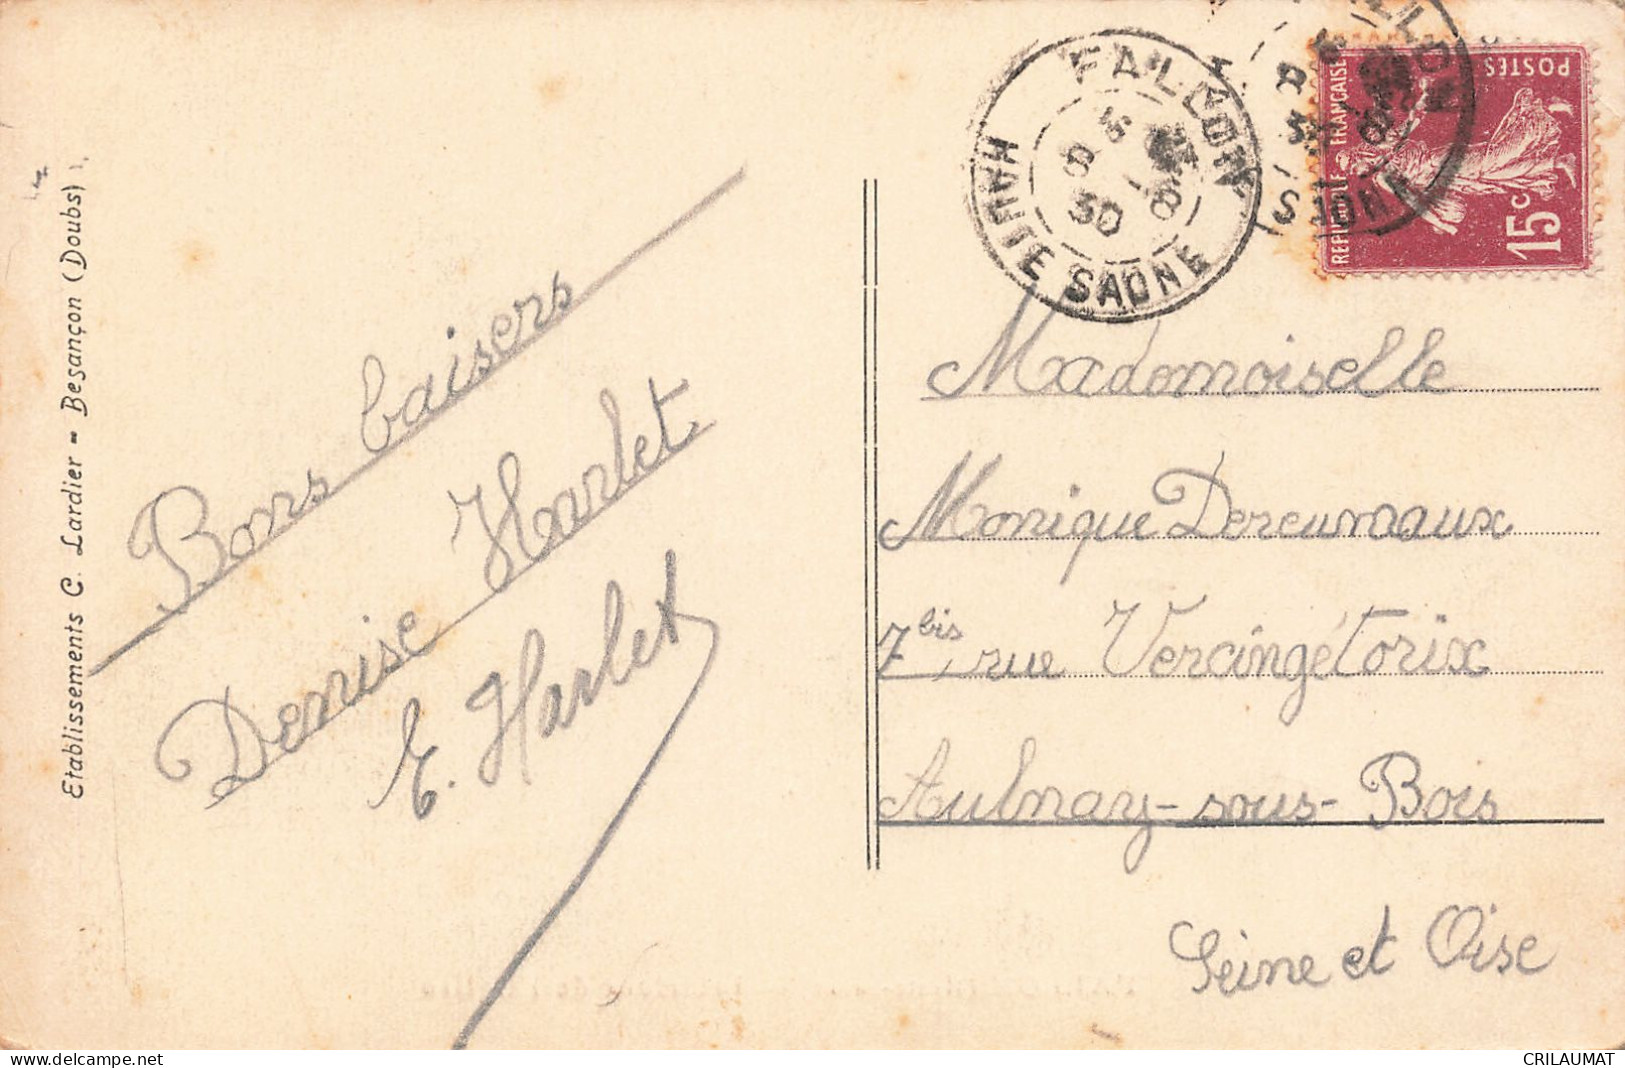 Etablissements C. Lardier - Besançon (Doubs)
Bons baisers
Denise Harlet
E. Harlet
FALLON
8
30
HAUTE SAONE
REPUBLIQUE FRANÇAISE
POSTES
15c
Mademoiselle
Monique Dereumaux
7 bis, rue Vercingétorix
Aulnay-sous-Bois
Seine et Oise
delcampe.net
CRILAUMAT